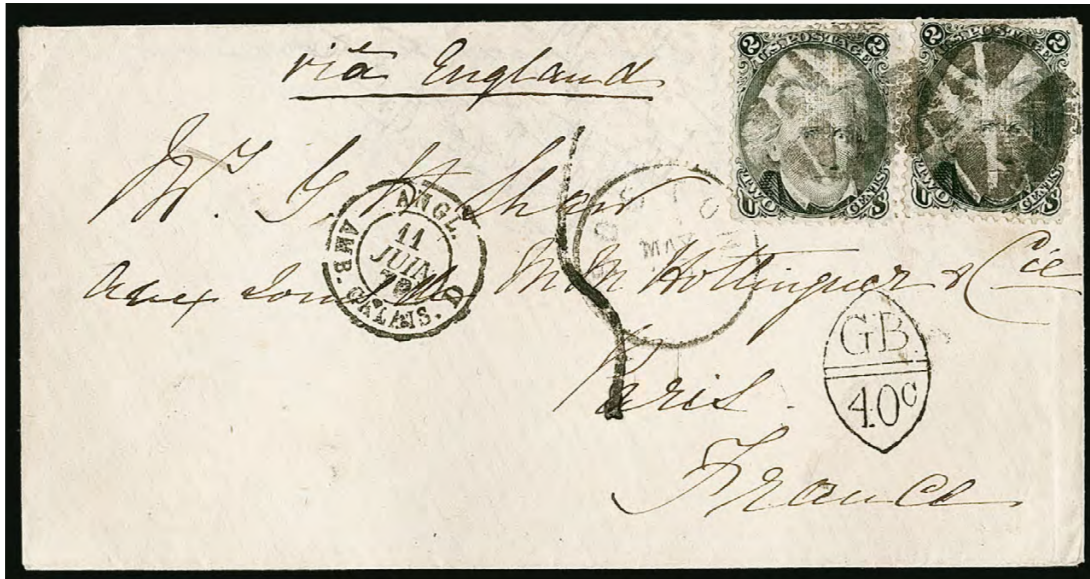 via England
2 U.S. POSTAGE 2
TWO CENTS
U S
2 U.S. POSTAGE 2
TWO CENTS
U S
Mr. G. H. Shaw
ANGL.
11
JUIN
70
AMB. CALAIS. D
BOSTON
MAY
aux soins de M M Hottinguer & Cie
GB
40c
Paris
France